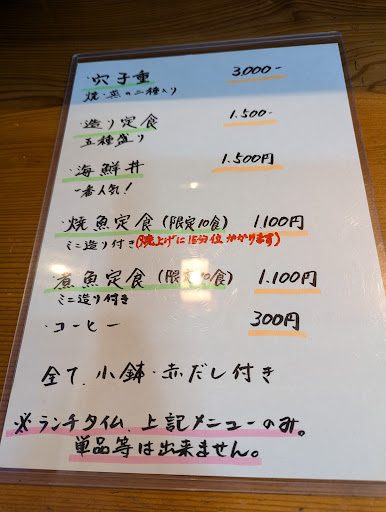 ・穴子重 3,000-
焼・蒸の二種入り
・造り定食 1.500-
五種盛り
・海鮮丼 1.500円
一番人気!
・焼魚定食(限定10食) 1.100円
ミニ造り付き(焼上げに15分位かかります)
・煮魚定食(限定10食) 1.100円
ミニ造り付き
・コーヒー 300円
全て、小鉢・赤だし付き
※ランチタイム、上記メニューのみ。
単品等は出来ません。